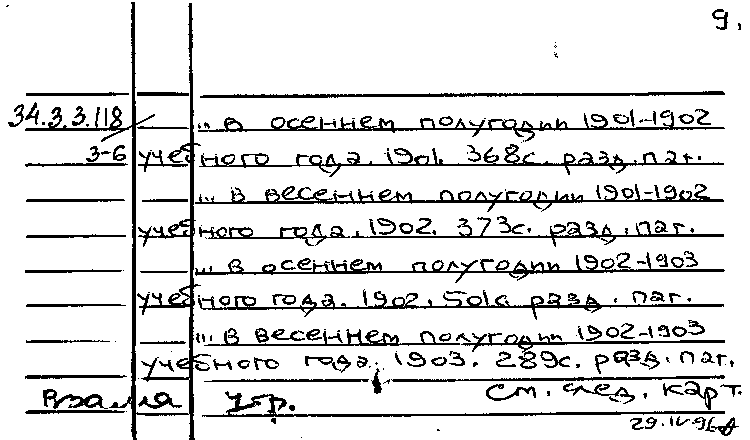 9.
34.3.3.118 ... в осеннем полугодии 1901-1902
3-6 учебного года. 1901. 368с. разд. паг.
... в весеннем полугодии 1901-1902
учебного года. 1902. 373с. разд. паг.
... в осеннем полугодии 1902-1903
учебного года. 1902. 501с. разд. паг.
... в весеннем полугодии 1902-1903
учебного года. 1903. 289с. разд. паг.
см. след. карт.